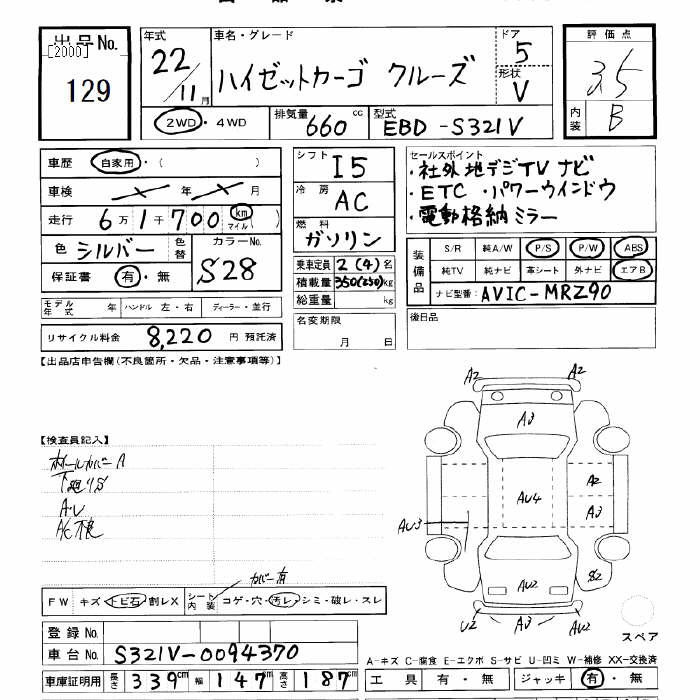 出品No.
[2000]
129
年式
22/11月
車名・グレード
ハイゼットカーゴ クルーズ
ドア
5
形状
V
評価点
3.5
内装
B
2WD・4WD
排気量
660 cc
型式
EBD-S321V
車歴 自家用・( )
車検 年 月
走行 6万1千700 km マイル( )
色 シルバー 色替
カラーNo.
S28
保証書 有・無
シフト I5
冷房 AC
燃料
ガソリン
乗車定員 2(4)名
積載量 350(250)kg
総重量 kg
セールスポイント
・社外地デジTVナビ
・ETC ・パワーウインドウ
・電動格納ミラー
装備品
S/R 純A/W P/S P/W ABS
純TV 純ナビ 革シート 外ナビ エアB
ナビ型番: AVIC-MRZ90
モデル年式 年 ハンドル 左・右 ディーラー・並行
リサイクル料金 8,220 円 預託済
名変期限
月 日
後日品
【出品店申告欄(不良箇所・欠品・注意事項等)】
【検査員記入】
下廻りS
A2 A2
A3
AU4
A2
A3
AU3
AU2
S2
U2 A3 AU2
スペア
カバー有
FW キズ・トビ石・割レX
シート内装 コゲ・穴・汚レ・シミ・破レ・スレ
登録No.
車台No. S321V-0094370
車庫証明用 長さ 339cm 幅 147cm 高さ 187cm
A-キズ C-腐食 E-エクボ S-サビ U-凹ミ W-補修 XX-交換済
工具 有・無 ジャッキ 有・無